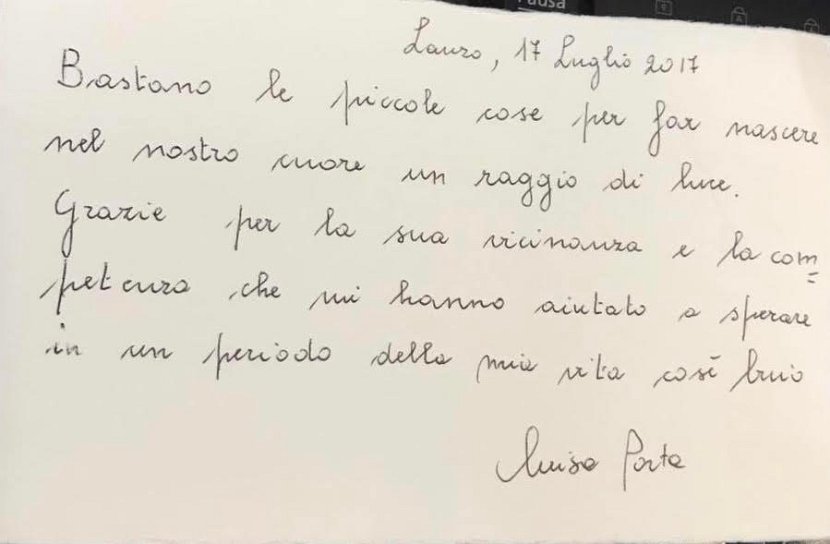 Pausa
Lauro, 17 Luglio 2017
Bastano le piccole cose per far nascere
nel nostro cuore un raggio di luce.
Grazie per la sua vicinanza e la com=
petenza che mi hanno aiutato a sperare
in un periodo della mia vita così buio
Luisa Porta